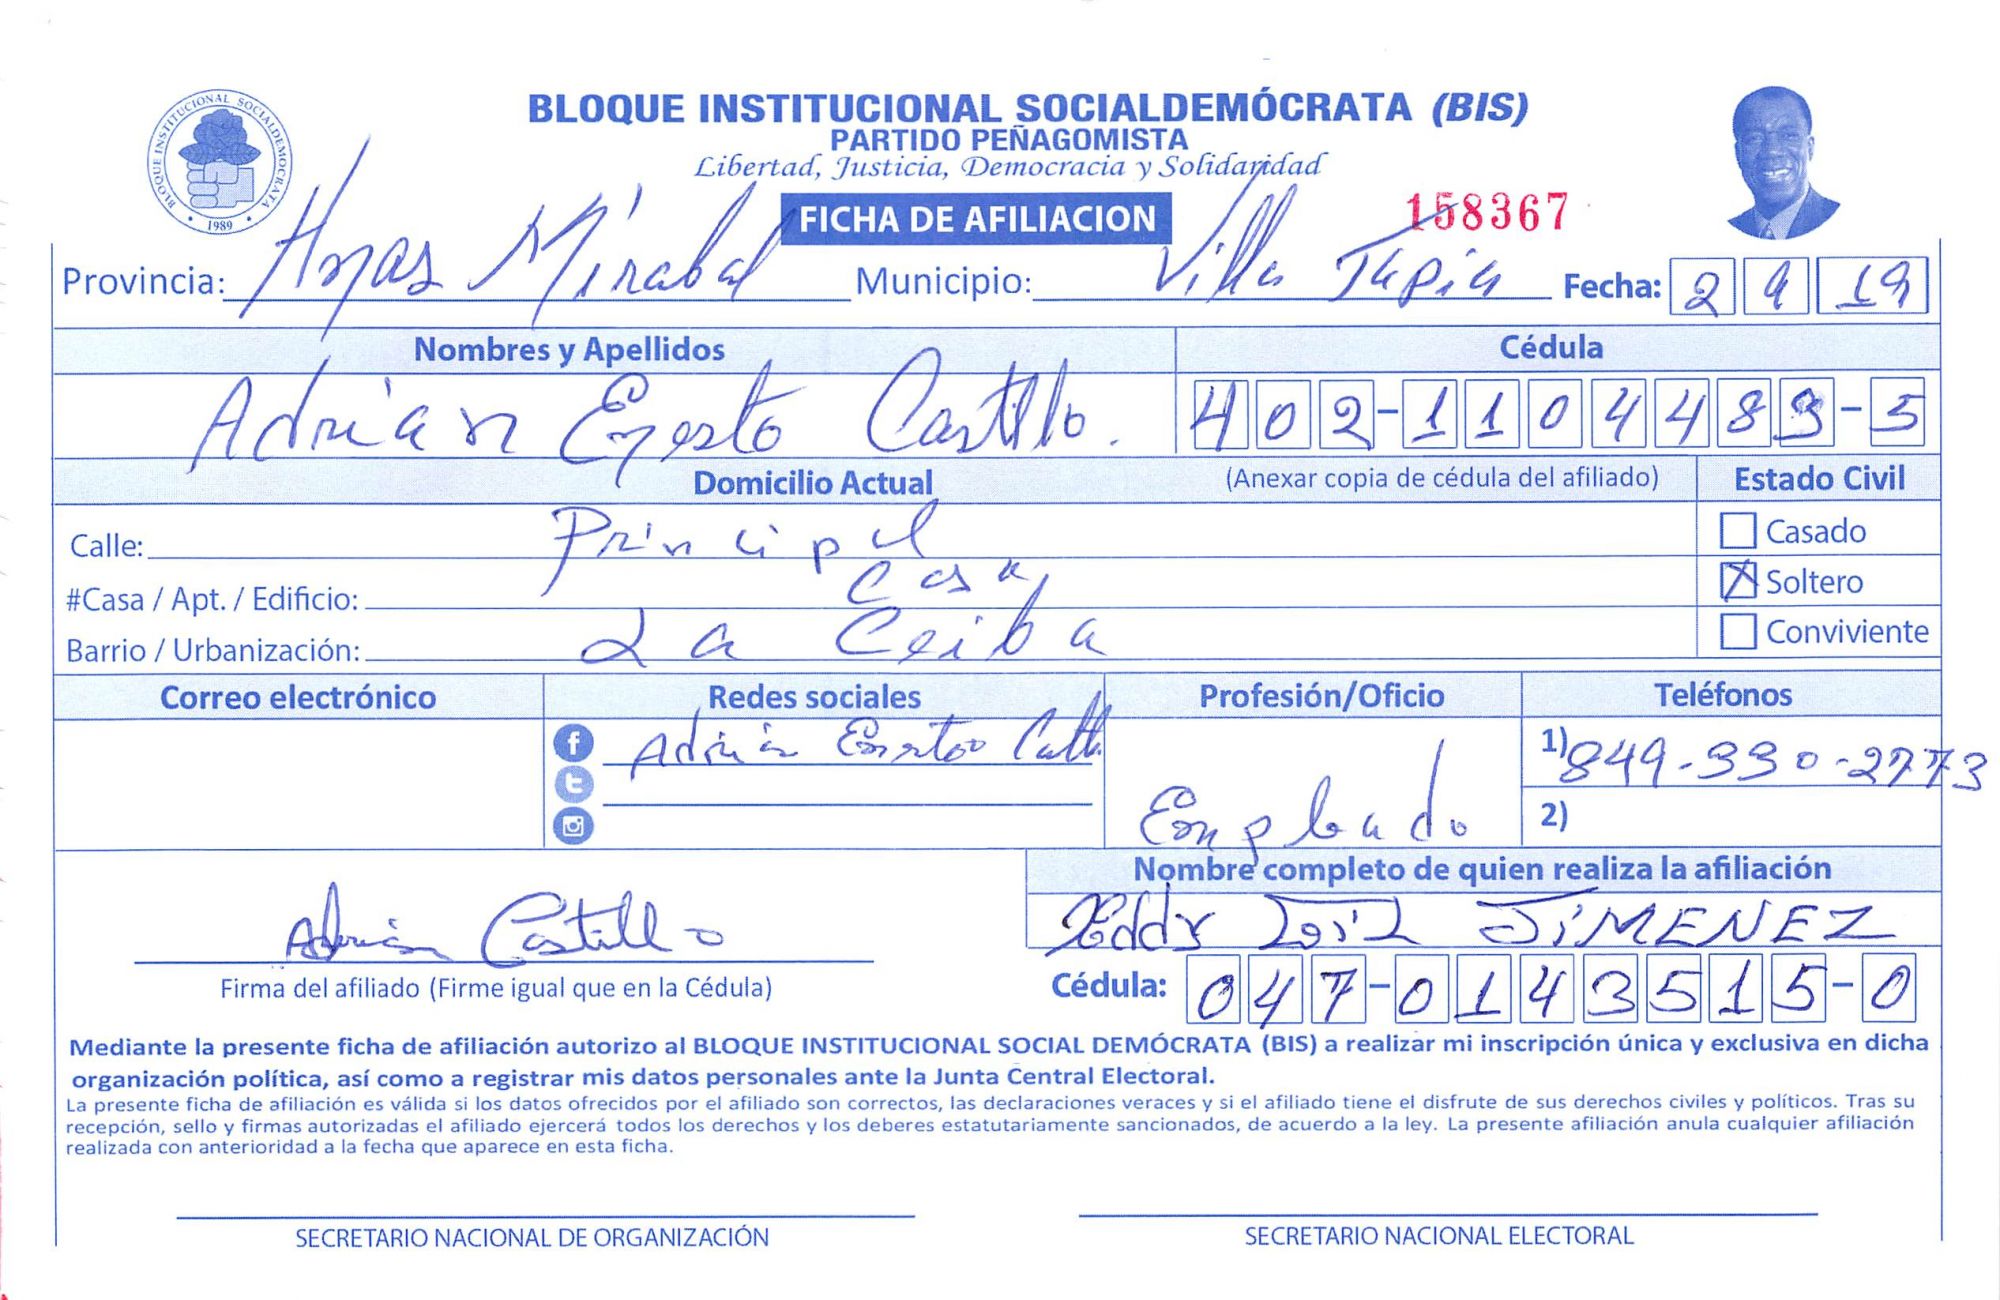 BLOQUE INSTITUCIONAL SOCIALDEMÓCRATA (BIS)
PARTIDO PEÑAGOMISTA
Libertad, Justicia, Democracia y Solidaridad
BLOQUE INSTITUCIONAL SOCIALDEMOCRATA
1989
FICHA DE AFILIACION
158367
Provincia: Hnas Mirabal Municipio: Villa Tapia Fecha: 2 9 19
Nombres y Apellidos Cédula
Adrián Ernesto Castillo. 402-1104483-5
Domicilio Actual (Anexar copia de cédula del afiliado) Estado Civil
Calle: Principal Casado
#Casa / Apt. / Edificio: Casa Soltero
Barrio / Urbanización: La Ceiba Conviviente
Correo electrónico Redes sociales Profesión/Oficio Teléfonos
Adrián Ernesto 1) 849-330-2773
Empleado 2)
Nombre completo de quien realiza la afiliación
Adrián Castillo Eddy JIMENEZ
Firma del afiliado (Firme igual que en la Cédula) Cédula: 047-0143515-0
Mediante la presente ficha de afiliación autorizo al BLOQUE INSTITUCIONAL SOCIAL DEMÓCRATA (BIS) a realizar mi inscripción única y exclusiva en dicha
organización política, así como a registrar mis datos personales ante la Junta Central Electoral.
La presente ficha de afiliación es válida si los datos ofrecidos por el afiliado son correctos, las declaraciones veraces y si el afiliado tiene el disfrute de sus derechos civiles y políticos. Tras su
recepción, sello y firmas autorizadas el afiliado ejercerá todos los derechos y los deberes estatutariamente sancionados, de acuerdo a la ley. La presente afiliación anula cualquier afiliación
realizada con anterioridad a la fecha que aparece en esta ficha.
SECRETARIO NACIONAL DE ORGANIZACIÓN SECRETARIO NACIONAL ELECTORAL